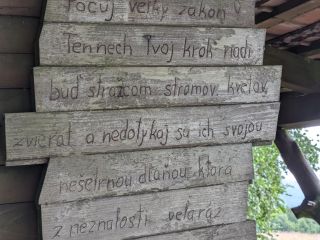 Pocuj veľký zákon
Ten nech Tvoj krok riadi
buď strážcom stromov, kvetov,
zvierat a nedotýkaj sa ich svojou
nešetrnou dlaňou, ktorá
z neznalosti veľaráz